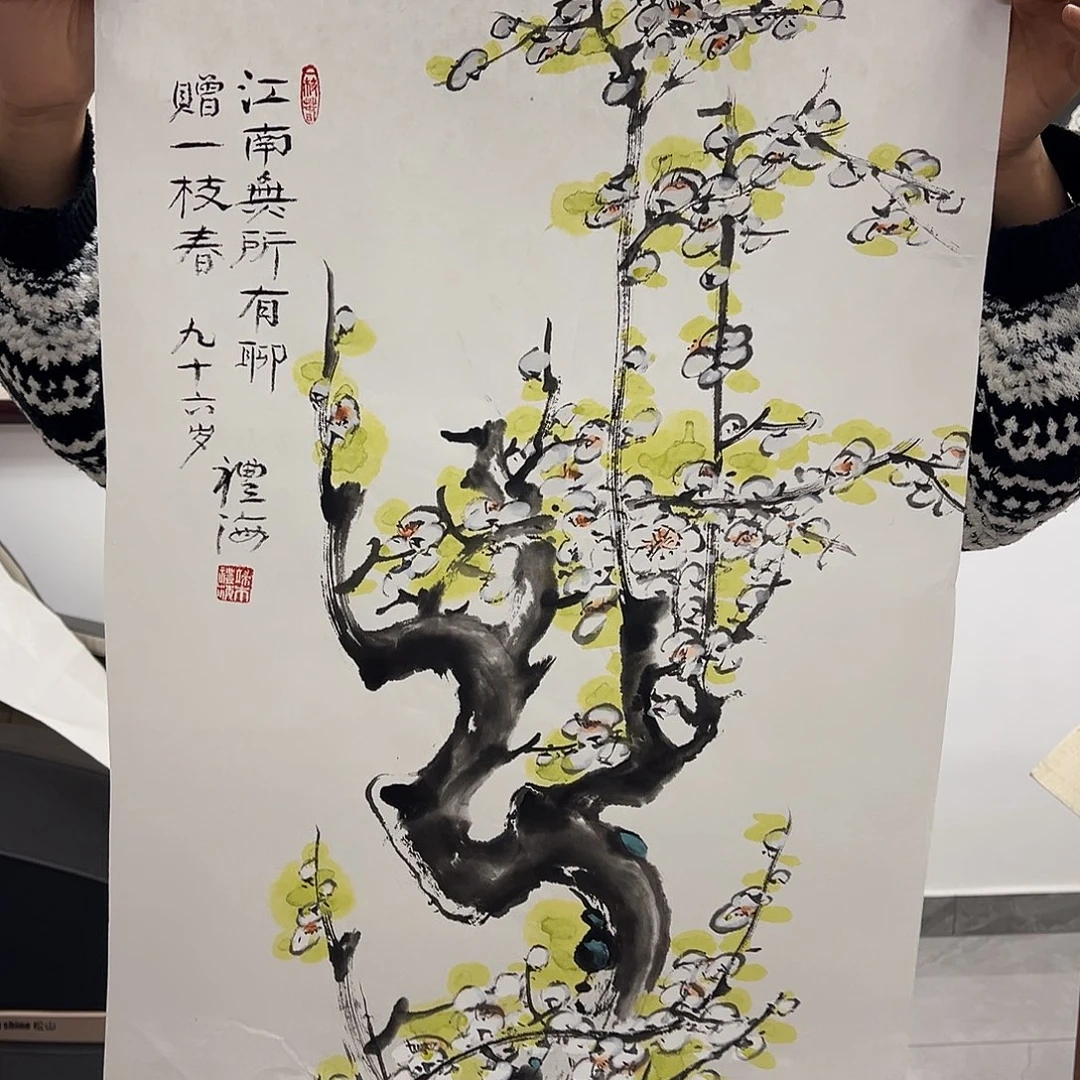 江南無所有聊
贈一枝春
九十六岁
禮海
shine 松山